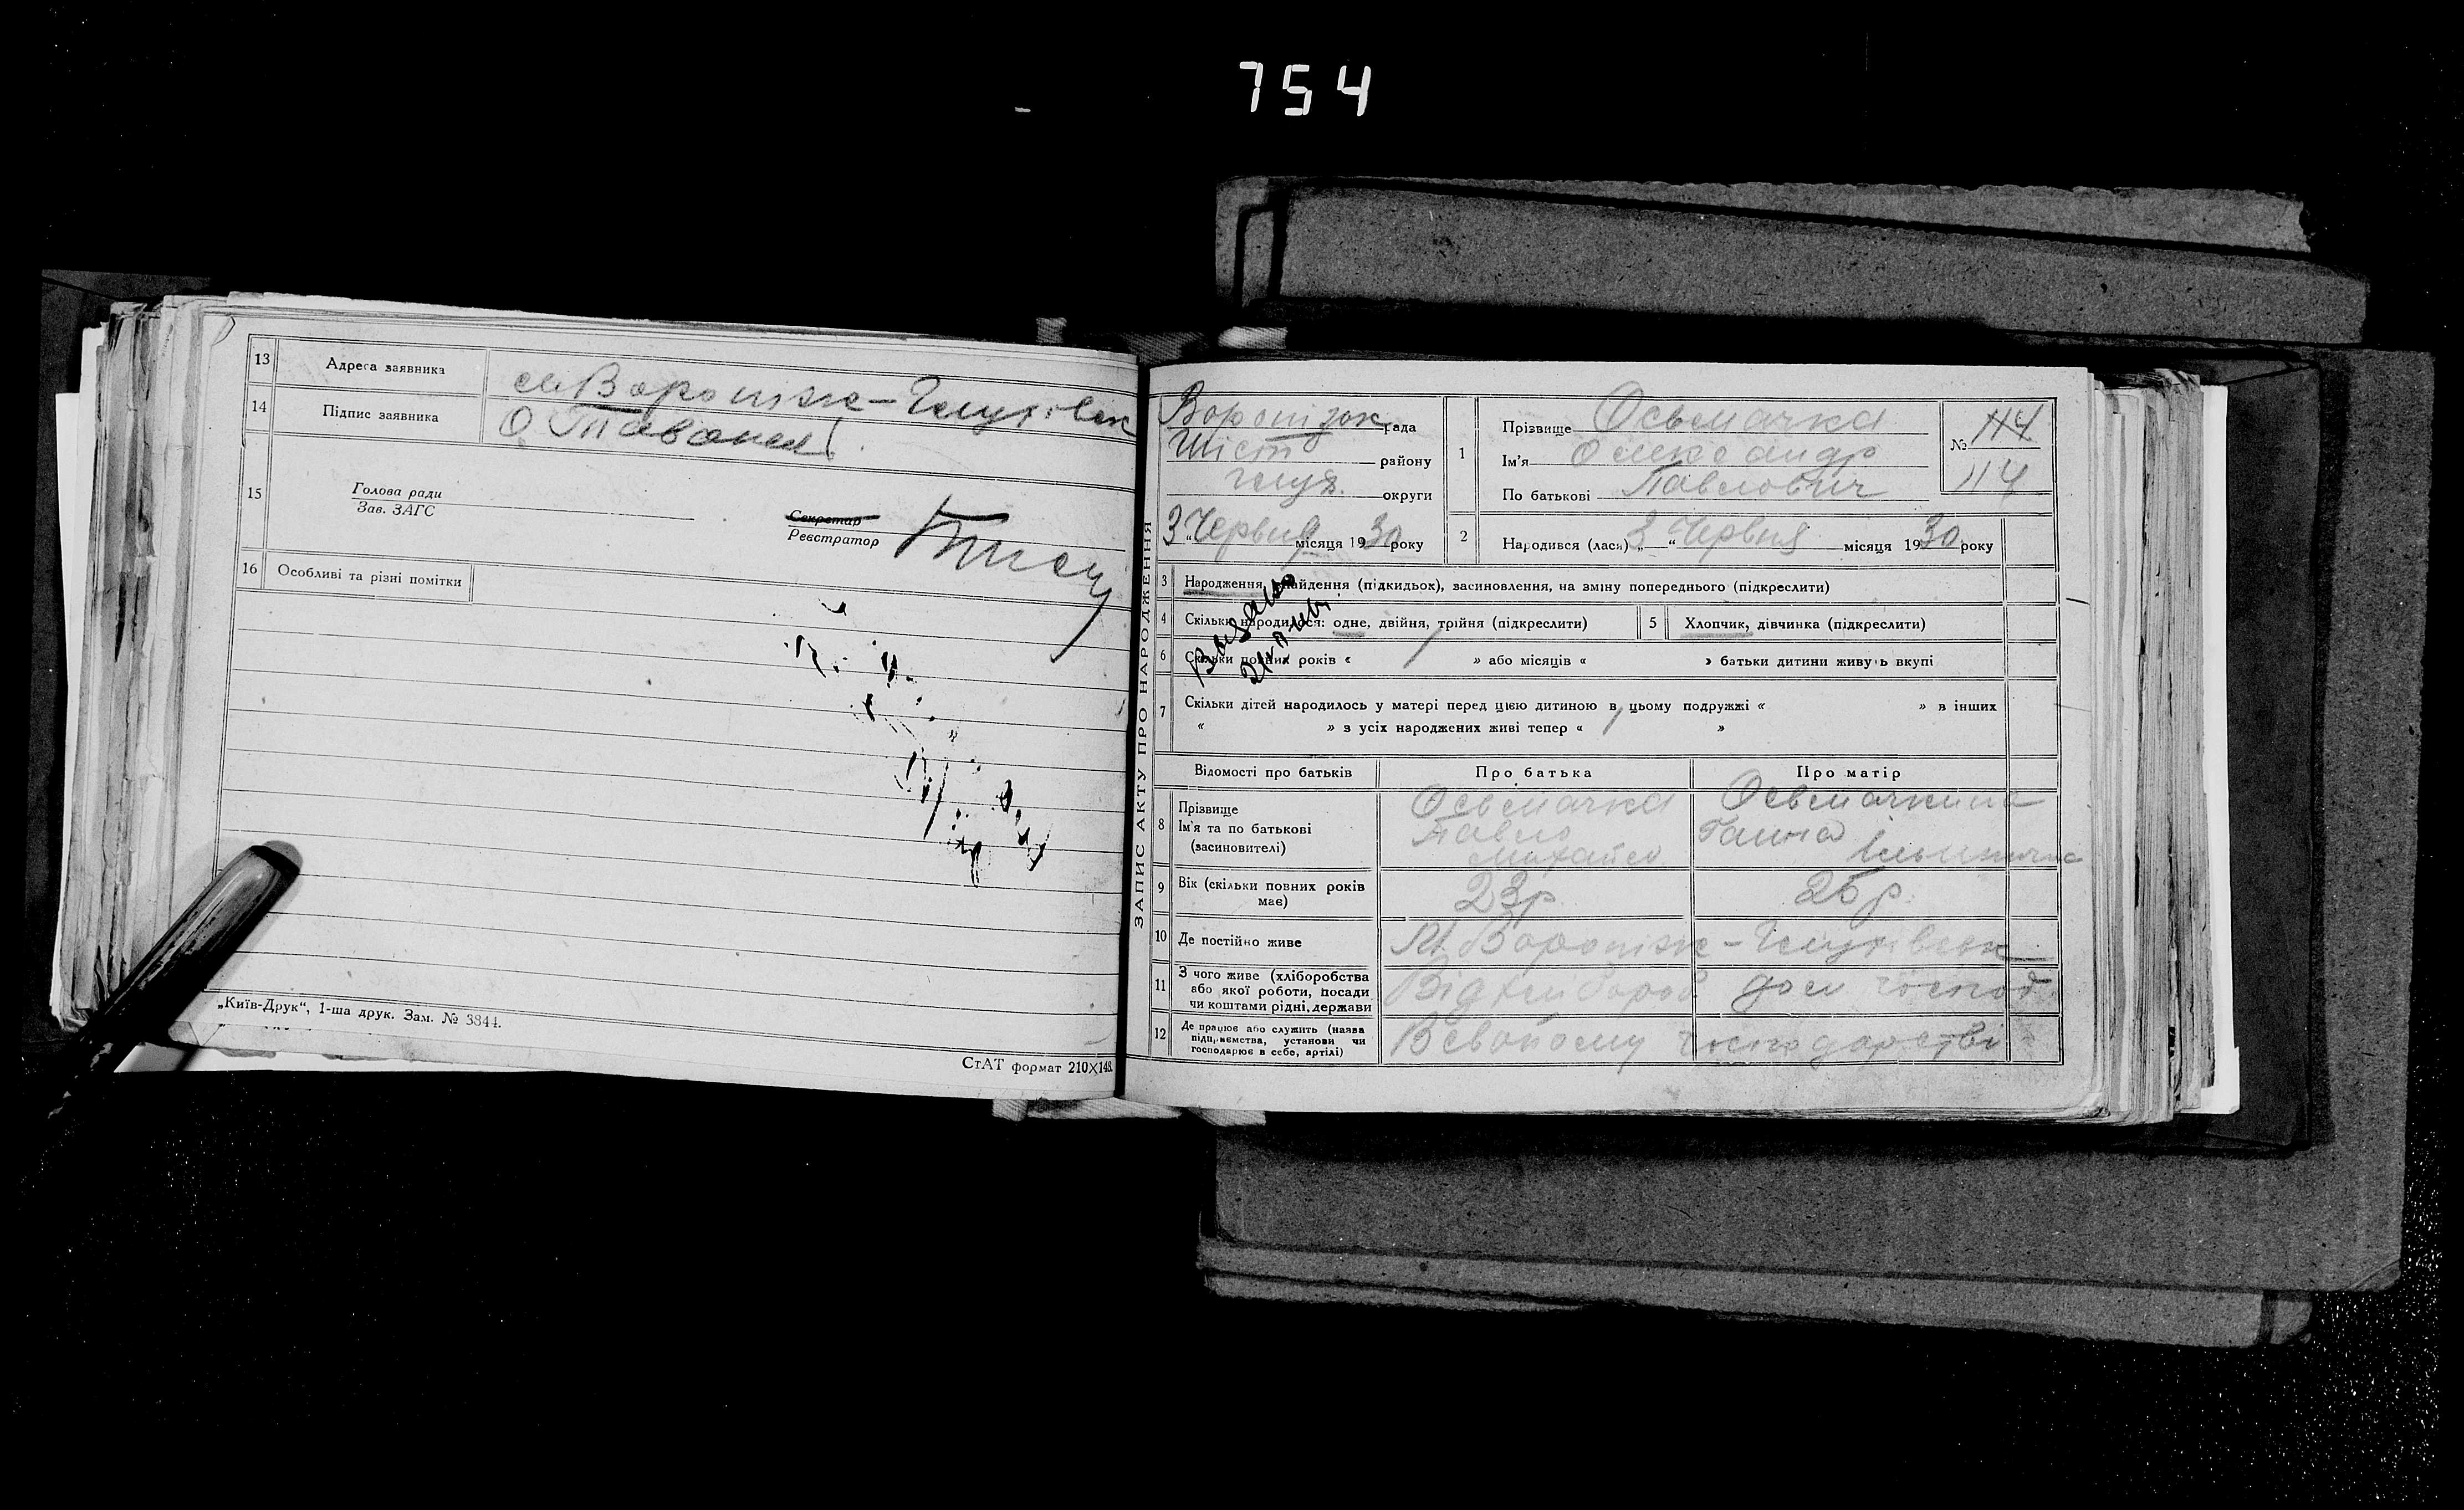 754
13 Адреса заявника м Вороніж-Глухівськ
14 Підпис заявника О.
15 Голова ради
Зав. ЗАГС
Секретар
Реєстратор
16 Особливі та різні помітки
„Київ-Друк“, 1-ша друк. Зам. № 3844.
СтАТ формат 210Х148.
ЗАПИС АКТУ ПРО НАРОДЖЕННЯ
рада
району
Глух. округи
3 „ “ Червня місяця 1930 року
1 Прізвище Осьмачка
Ім'я Олександр
По батькові Павлович
№ 114
114
2 Народився (лася) „3“ Червня місяця 1930 року
3 Народження, знайдення (підкидьох), засиновлення, на зміну попереднього (підкреслити)
4 Скільки народилося: одне, двійня, трійня (підкреслити)
5 Хлопчик, дівчинка (підкреслити)
6 Скільки повних років « » або місяців « » батьки дитини живуть вкупі
7 Скільки дітей народилось у матері перед цією дитиною в цьому подружжі « » в інших
« » з усіх народжених живі тепер « »
Відомості про батьків Про батька Про матір
8 Прізвище
Ім'я та по батькові
(засиновителі)
Осьмачка
Павло
Михайло
Осьмачкина
Ганна
9 Вік (скільки повних років має) 23р. 25 р.
10 Де постійно живе М. Вороніж-Глухівськ
11 З чого живе (хліборобства
або якої роботи, посади
чи коштами рідні, держави
Від хлібороб дом господ
12 Де працює або служить (назва
підприємства, установи чи
господарює в себе, артілі)
В свойому господарстві